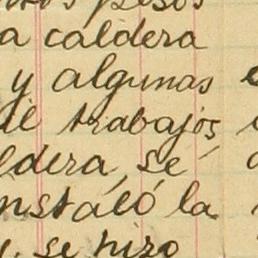 pesos
a caldera
y algunas
de trabajos,
ldera, se
nstaló la
y. se hizo